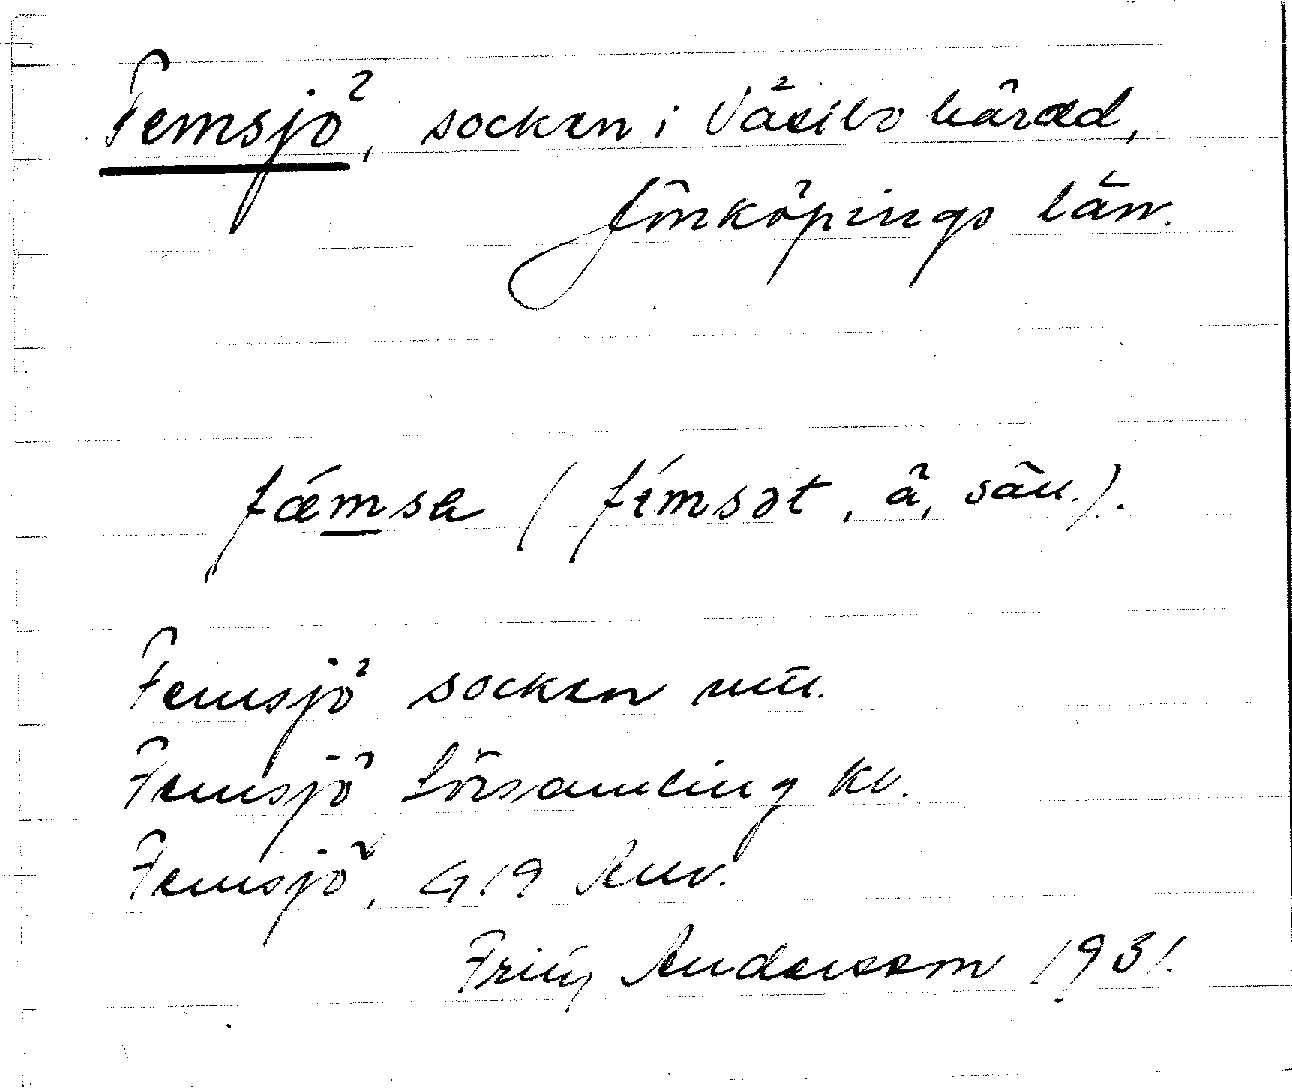 Femsjö, socken i Västbo härad,
Jönköpings län.
fǽmsa (fímsət, ä, sän.).
Femsjö socken mtl.
Femsjö församling kv.
Femsjö, G 19 Anv.
Fritz Andersson 1931.